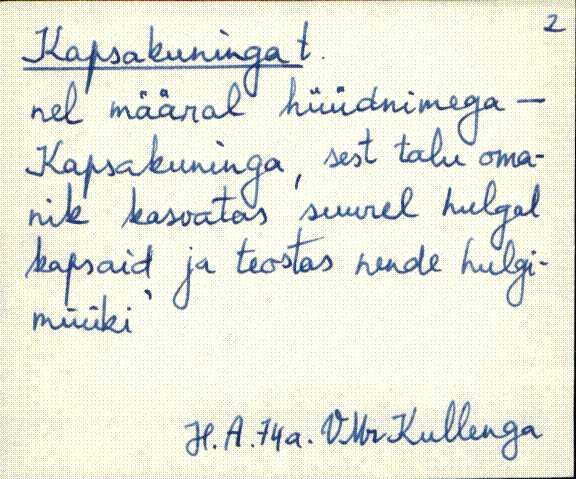 2
Kapsakuninga t.
nel määral hüüdnimega —
Kapsakuninga, sest talu oma-
nik kasvatas suurel hulgal
kapsaid ja teostas nende hulgi-
müüki
H. A. 74a. VMr Kullenga